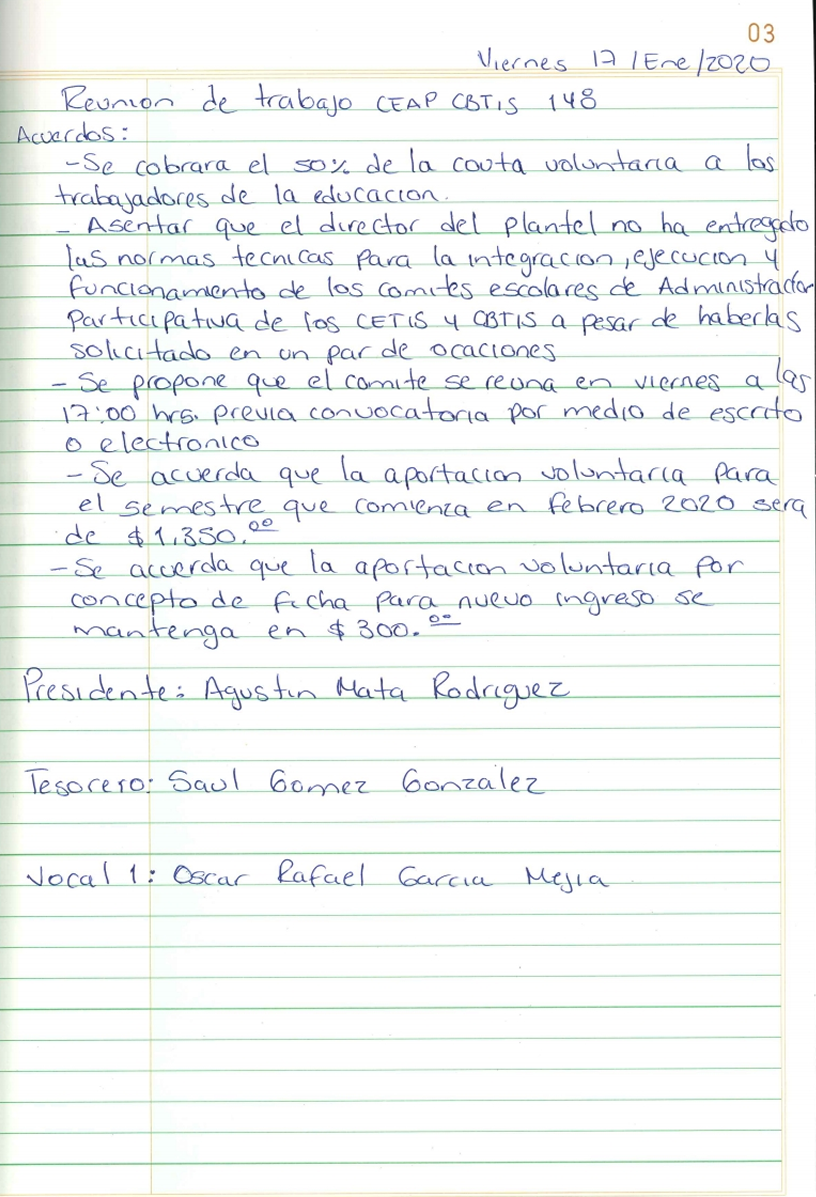 03
Viernes 17 / Ene / 2020
Reunion de trabajo CEAP CBTIS 148
Acuerdos:
-Se cobrara el 50% de la couta voluntaria a los
trabajadores de la educacion.
- Asentar que el director del plantel no ha entregado
las normas tecnicas para la integracion, ejecucion y
funcionamiento de los comites escolares de Administracion
Participativa de los CETIS y CBTIS a pesar de haberlas
solicitado en un par de ocaciones
- Se propone que el comite se reuna en viernes a las
17:00 hrs. previa convocatoria por medio de escrito
o electronico
- Se acuerda que la aportacion voluntaria para
el semestre que comienza en febrero 2020 sera
de $1,350.00
- Se acuerda que la aportacion voluntaria por
concepto de ficha para nuevo ingreso se
mantenga en $300.00
Presidente: Agustin Mata Rodriguez
Tesorero: Saul Gomez Gonzalez
Vocal 1: Oscar Rafael Garcia Mejia